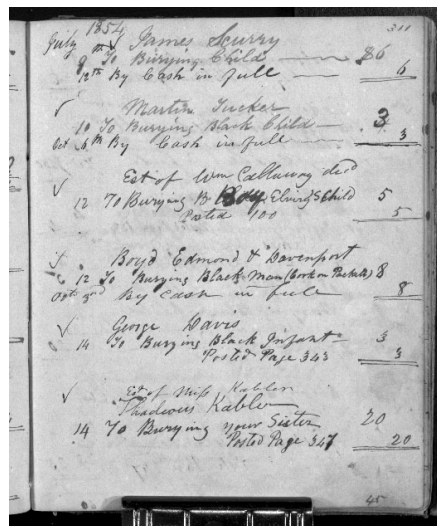 311
July 1854
James Scurry
9 To Burying Child $6
12th By Cash in full 6
Martin Tucker
10 To Burying Black Child 3
Oct 5th By Cash in full 3
Est of Wm Callaway decd
12 To Burying B Boy Elvira's Child 5
Posted 100 5
Boyd Edmond & Davenport
12 To Burying Black Man (Cook on Packett) 8
Oct 3rd By Cash in full 8
George Davis
14 To Burying Black Infant 3
Posted Page 343 3
Est of Miss Kabler
Thadeous Kabler
14 To Burying your Sister 20
Posted Page 347 20
45